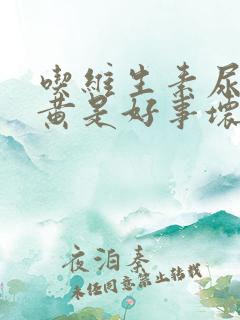 喫維生素尿
黃是好事壞
夜泊秦
未经同意禁止转载